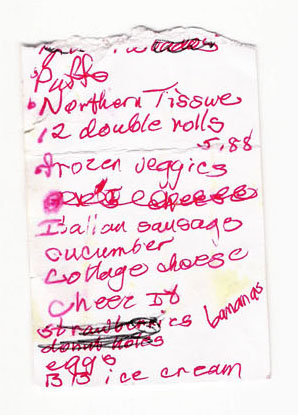 Puffs
Northern Tissue
12 double rolls
5.88
frozen veggies
Italian sausage
cucumber
Cottage cheese
Cheez It
bananas
strawberries
donut holes
eggs
BB ice cream